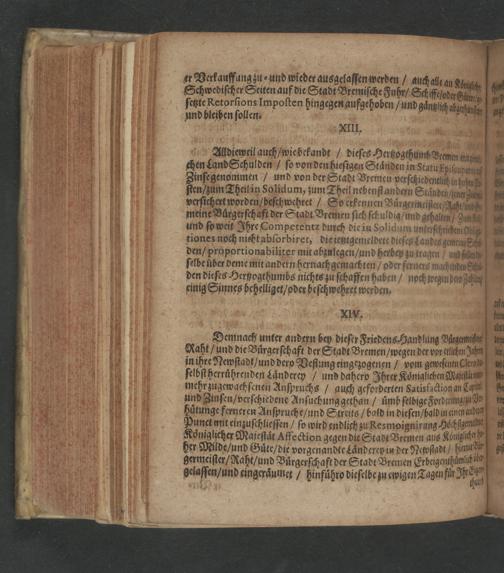 er Verkauffang zu- und wieder ausgelassen werden / auch alle an Königlicher
Schwedischer Seiten auf die Stadt Bremische Fuhr / Schiffe / oder Güter
setzte Retorsions Imposten hingegen aufgehoben / und gäntzlich
und bleiben sollen.
XIII.
Alldieweil auch / wie bekandt / dieses Hertzogthumb Bremen mit
chen Land Schulden / so von den hiesigen Ständen in Statu Episcopatus
Zinse genommen / und von der Stadt Bremen verschiedentlich in hohen
sten / zum Theil in Solidum, zum Theil nebenst andern Ständen /
versichert worden / beschwehret / So erkennen Bürgermeistere / Raht / und
meine Bürgerschaft der Stadt Bremen sich schuldig / und gehalten /
und so weit Ihre Competentz durch die in Solidum unterschriebene
tiones noch nicht absorbiret, die jetzgemeldete dieses Landes gemeine
den / proportionabiliter mit abzulegen / und herbey zu tragen / und sollen
selbe über deme mit andern hernach gemachten / oder ferners machenden
den dieses Hertzogthumbs nichts zu schaffen haben / noch wegen der Zahlung
einig Sinnes behelliget / oder beschwehret werden.
XIV.
Demnach unter andern bey dieser Friedens-Handlung Bürgermeister
Raht / und die Bürgerschaft der Stadt Bremen / wegen der vor etlichen Jahren
in ihre Newstadt / und dero Vestung eingezogenen / vom gewesenen
selbst herrührenden Länderey / und dahero Ihrer Königlichen Majestät
mehr zugewachsenen Anspruchs / auch geforderten Satisfaction an Capital
und Zinsen / verschiedene Ansuchung gethan / ümb selbige Forderung
hütunge ferneren Anspruche / und Streits / bald in diesen / bald in einen andern
Punct mit einzuschliessen / so wird endlich zu Resmoignirung Höchstgemelter
Königlicher Majestät Affection gegen die Stadt Bremen aus Königlicher
her Milde / und Güte / die vorgenandte Länderey in der Newstadt /
germeister / Raht / und Bürgerschaft der Stadt Bremen Erb eigenthümlich
gelassen / und eingeräumet / hinführo dieselbe zu ewigen Tagen für Ihr